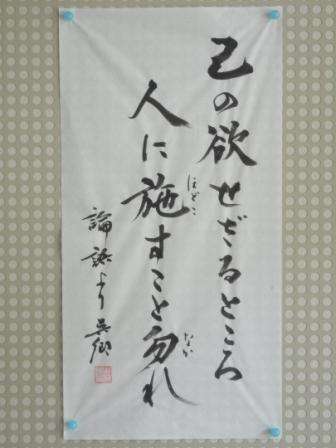 己の欲せざるところ
人に施すこと勿れ
ほどこ
論語より